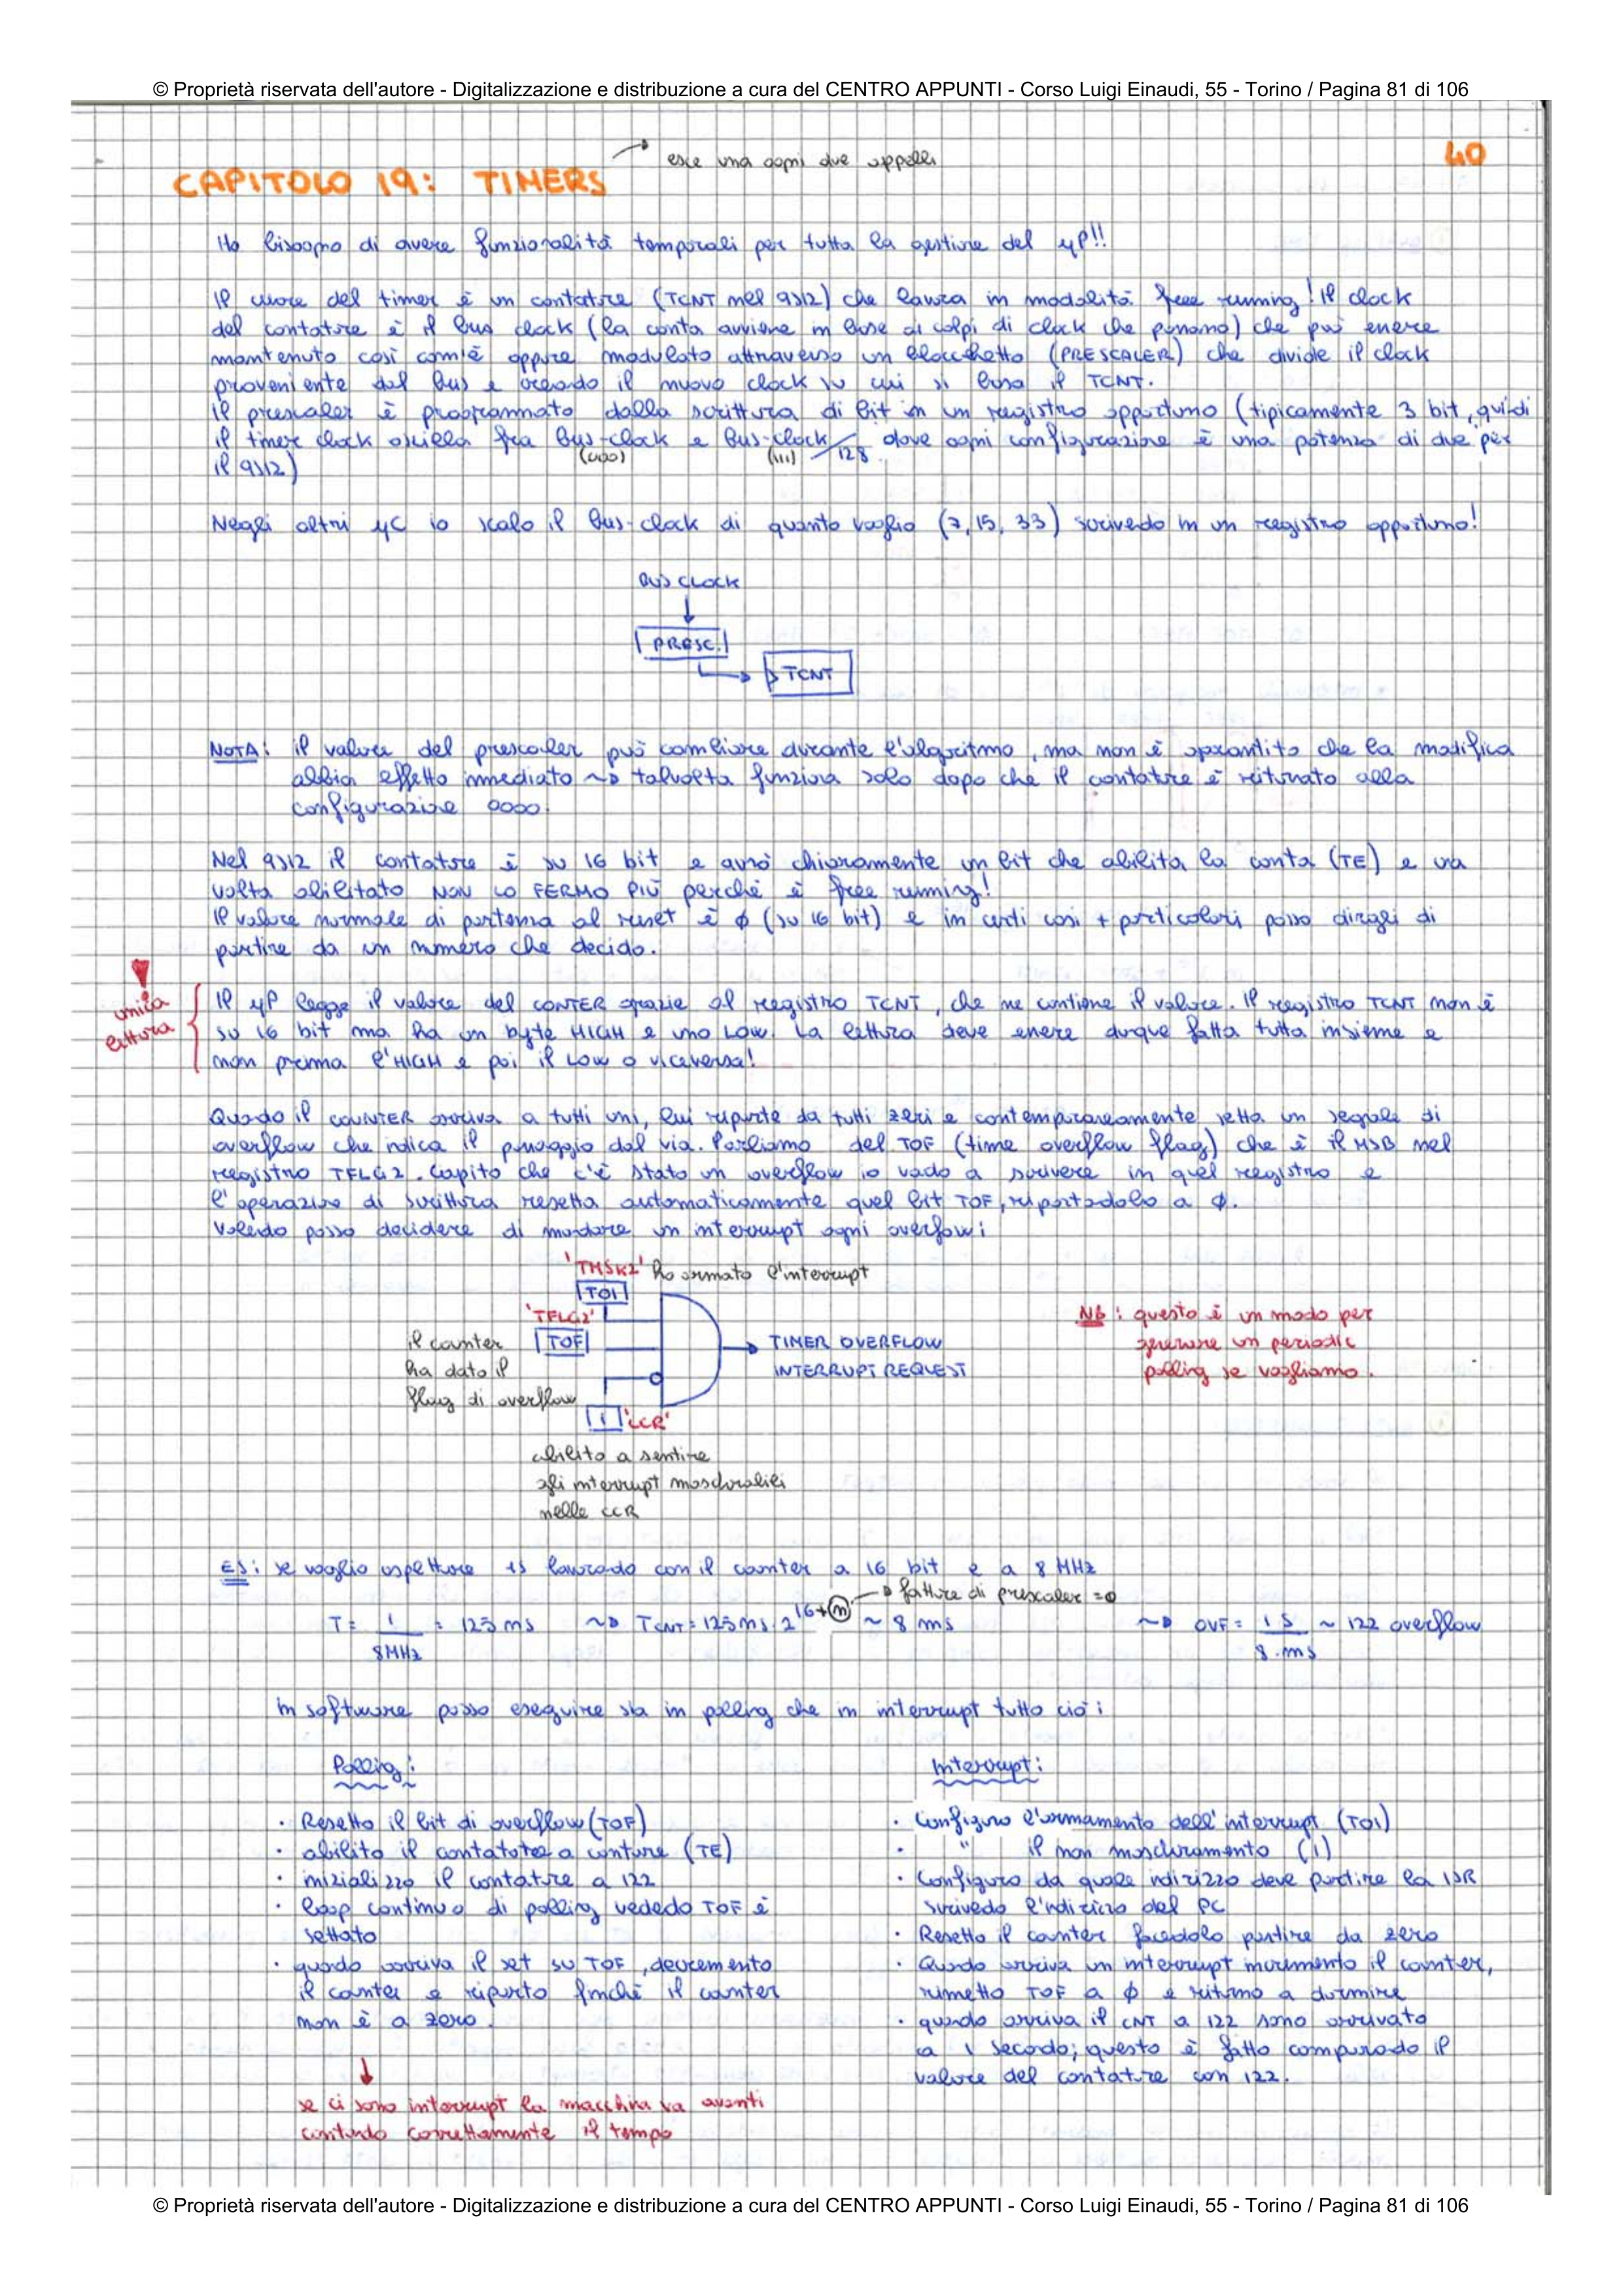 © Proprietà riservata dell'autore - Digitalizzazione e distribuzione a cura del CENTRO APPUNTI - Corso Luigi Einaudi, 55 - Torino / Pagina 81 di 106
esce una ogni due appelli
40
CAPITOLO 19: TIMERS
Ho bisogno di avere funzionalità temporali per tutta la gestione del μP!!
Il cuore del timer è un contatore (TCNT nel 9S12) che lavora in modalità free running! Il clock
del contatore è il bus clock (la conta avviene in base ai colpi di clock che passano) che può essere
mantenuto così com'è oppure modulato attraverso un blocchetto (PRESCALER) che divide il clock
proveniente dal bus e creando il nuovo clock su cui si basa il TCNT.
Il prescaler è programmato dalla scrittura di bit in un registro opportuno (tipicamente 3 bit, quindi
il timer clock oscilla fra bus-clock e bus-clock/128 dove ogni configurazione è una potenza di due per
(000) (111)
il 9S12)
Negli altri μC io scalo il bus-clock di quanto voglio (7, 15, 33) scrivendo in un registro opportuno!
BUS CLOCK
PRESC.
TCNT
NOTA: il valore del prescaler può cambiare durante l'algoritmo, ma non è garantito che la modifica
abbia effetto immediato ~> talvolta funziona solo dopo che il contatore è ritornato alla
configurazione 0000.
Nel 9S12 il contatore è su 16 bit e avrò chiaramente un bit che abilita la conta (TE) e una
volta abilitato NON LO FERMO PIÙ perché è free running!
Il valore normale di partenza al reset è φ (su 16 bit) e in certi casi + particolari posso dirgli di
partire da un numero che decido.
!
unica
lettura
Il μP legge il valore del CONTER grazie al registro TCNT, che ne contiene il valore. Il registro TCNT non è
su 16 bit ma ha un byte HIGH e uno LOW. La lettura deve essere dunque fatta tutta insieme e
non prima l'HIGH e poi il LOW o viceversa!
Quando il COUNTER arriva a tutti uni, lui riparte da tutti zeri e contemporaneamente setta un segnale di
overflow che indica il passaggio dal via. Parliamo del TOF (time overflow flag) che è il MSB nel
registro TFLG2. Capito che c'è stato un overflow io vado a scrivere in quel registro e
l'operazione di scrittura resetta automaticamente quel bit TOF, riportandolo a φ.
Volendo posso decidere di mandare un interrupt ogni overflow:
'TMSK2' ho armato l'interrupt
TOI
'TFLG2'
il counter TOF
ha dato il
flag di overflow
TIMER OVERFLOW
INTERRUPT REQUEST
NB: questo è un modo per
generare un periodic
polling se vogliamo.
I 'CCR'
abilito a sentire
gli interrupt mascherabili
nelle CCR
ES: se voglio aspettare 1s lavorando con il counter a 16 bit e a 8 MHz
fattore di prescaler = 0
T = 1/8MHz = 125 ns ~> TCNT = 125 ns · 2^16+n ~ 8 ms ~> OVF = 1 s/8 · ms ~ 122 overflow
In software posso eseguire sia in polling che in interrupt tutto ciò:
Polling:
· Resetto il bit di overflow (TOF)
· abilito il contatore a contare (TE)
· inizializzo il contatore a 122
· loop continuo di polling vedendo TOF è
settato
· quando arriva il set su TOF, decremento
il counter e riparto finché il counter
non è a zero.
se ci sono interrupt la macchina va avanti
contando correttamente il tempo
Interrupt:
· Configuro l'armamento dell'interrupt (TOI)
· " il non mascheramento (I)
· Configuro da quale indirizzo deve partire la ISR
scrivendo l'indirizzo del PC
· Resetto il counter facendolo partire da zero
· Quando arriva un interrupt incremento il counter,
rimetto TOF a φ e ritorno a dormire
· quando arriva il CNT a 122 sono arrivato
a 1 secondo; questo è fatto comparando il
valore del contatore con 122.
© Proprietà riservata dell'autore - Digitalizzazione e distribuzione a cura del CENTRO APPUNTI - Corso Luigi Einaudi, 55 - Torino / Pagina 81 di 106